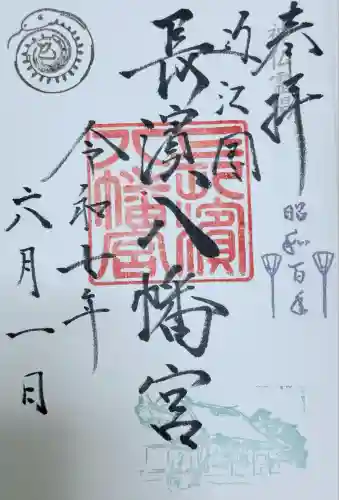 奉拝
昭和百年
近江国
長濱八幡宮
長濱八幡宮
令和七年
六月一日
巳